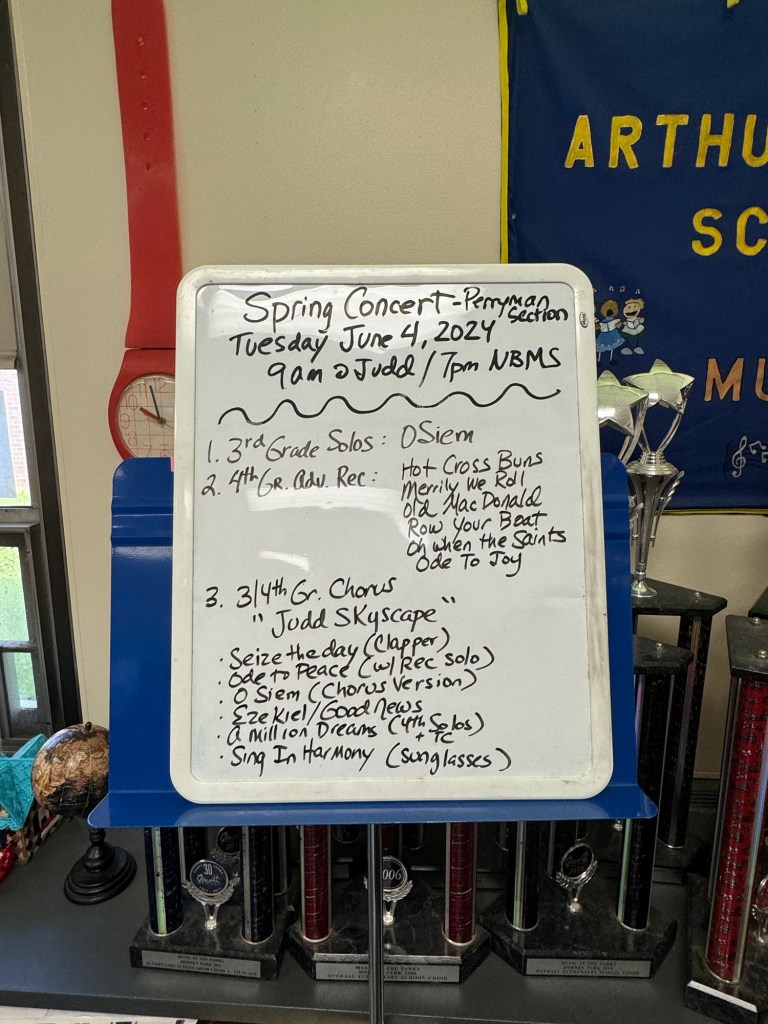 ARTHU
SC
MU
Spring Concert - Perryman
Section
Tuesday June 4, 2024
9am @ Judd / 7pm NBMS
1. 3rd Grade Solos : O Siem
2. 4th Gr. Adv. Rec : Hot Cross Buns
Merrily We Roll
Old MacDonald
Row Your Boat
Oh when the Saints
Ode To Joy
3. 3/4th Gr. Chorus
"Judd SKyscape"
· Seize the day (Clapper)
· Ode to Peace (w/ Rec Solo)
· O Siem (Chorus Version)
· Ezekiel/Good News
· A million Dreams (4th Solos)
+ TC
· Sing In Harmony (Sunglasses)
30
2006
MUSIC IN THE PARKS
MUSIC IN THE PARKS